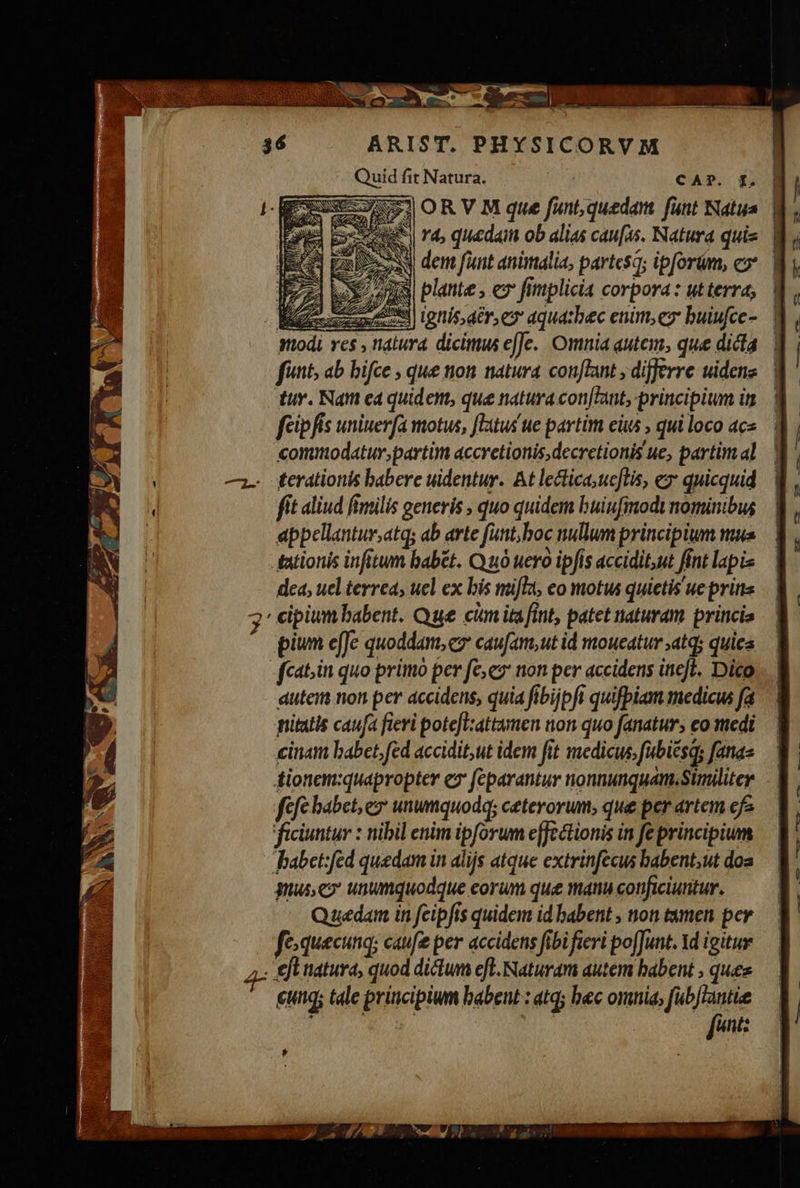 36 ARIST. PHYSICORVM
Quid fit Natura. CAP. I.
1. EORVM quæ ſunt, quædam ſunt Natu⸗
ra, quædam ob alias cauſas. Natura qui⸗
dem ſunt animalia, partesq; ipſorũm, &
plantæ, & ſimplicia corpora: ut terra,
ignis, aër, & aqua: hæc enim, & huiuſce-
modi res, natura dicimus eſſe. Omnia autem, quæ dicta
ſunt, ab hiſce, quæ non natura conſtant, differre uiden⸗
tur. Nam ea quidem, quæ natura conſtant, principium in
ſeipſis uniuerſa motus, ſtatus'ue partim eius, qui loco ac⸗
commodatur, partim accretionis, decretionis'ue, partim al
2. terationis habere uidentur. At lectica, ueſtis, & quicquid
ſit aliud ſimilis generis, quo quidem huiuſmodi nominibus
appellantur, atq; ab arte ſunt, hoc nullum principium mu⸗
tationis inſitum habēt. Quò uerò ipſis accidit, ut ſint lapi⸗
dea, uel terrea, uel ex his miſta, eo motus quietis'ue prin⸗
3. cipium habent. Quæ cùm ita ſint, patet naturam princi⸗
pium eſſe quoddam, & cauſam, ut id moueatur, atq; quieſ⸗
ſcat, in quo primò per ſe, & non per accidens ineſt. Dico
autem non per accidens, quia ſibijpſi quiſpiam medicus ſa
nitatis cauſa fieri poteſt: attamen non quo ſanatur, eo medi
cinam habet, ſed accidit, ut idem ſit medicus, ſubiēsq; ſana⸗
tionem: quapropter & ſeparantur nonnunquam. Similiter
ſeſe habet, & unumquodq; cæterorum, quæ per artem ef⸗
ficiuntur: nihil enim ipſorum effectionis in ſe principium
habet: ſed quædam in alijs atque extrinſecus habent, ut do⸗
mus, & unumquodque eorum quæ manu conficiuntur.
Quædam in ſeipſis quidem id habent, non tamen per
ſe, quæcunq; cauſæ per accidens ſibi fieri poſſunt. Id igitur
4. eſt natura, quod dictum eſt. Naturam autem habent, quæ⸗
cunq; tale principium habent: atq; hæc omnia, ſubſtantiæ
ſunt: